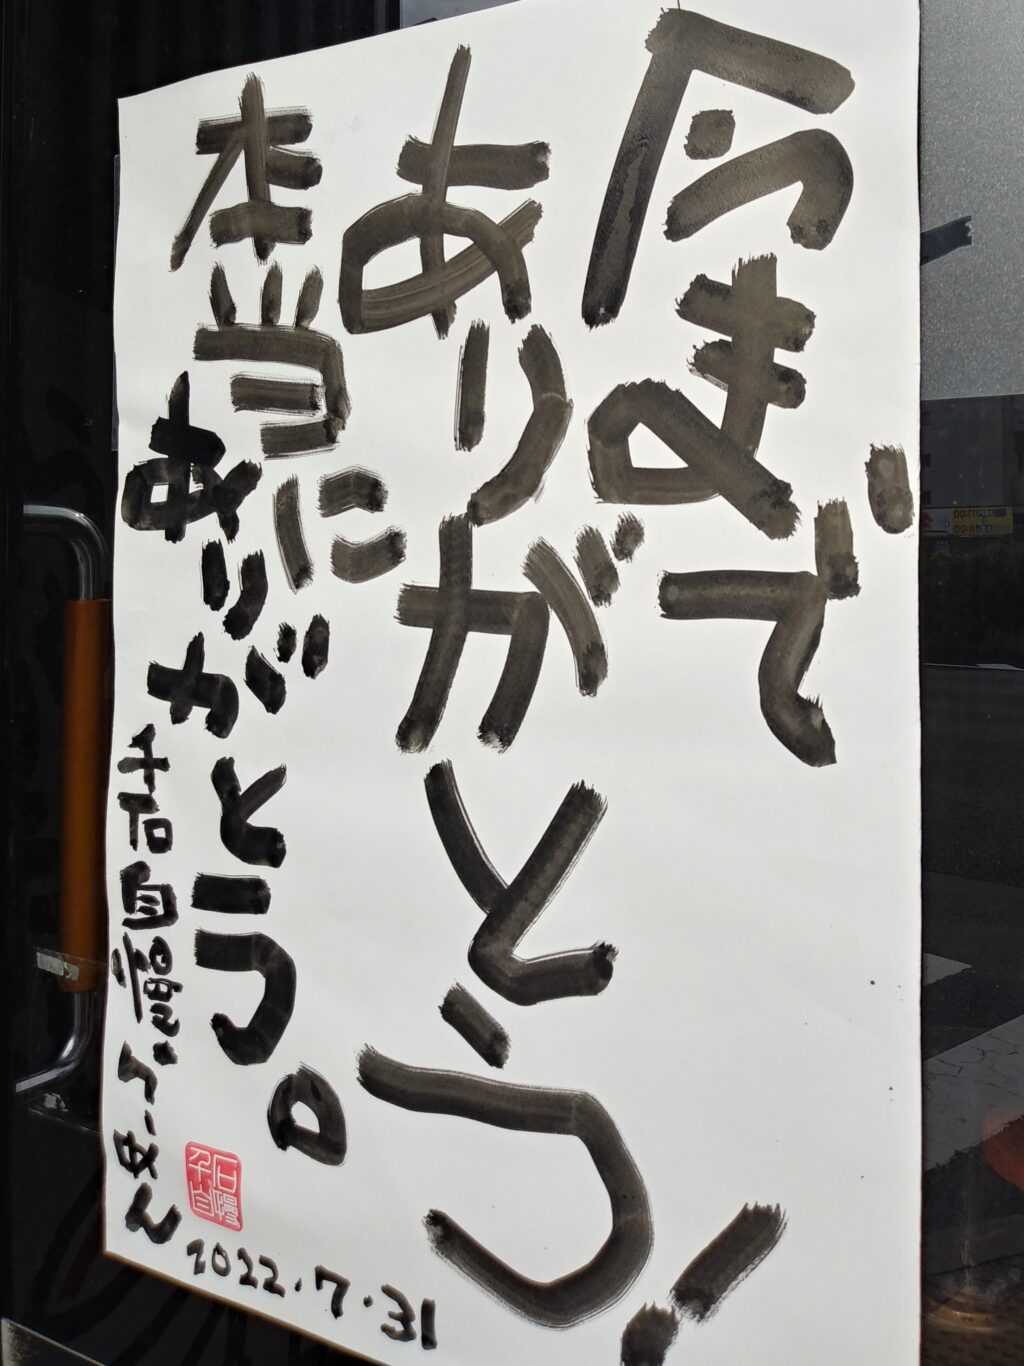 今まで
ありがとう!
本当にありがとう。
千石自慢らーめん
千石
自慢
2022.7.31